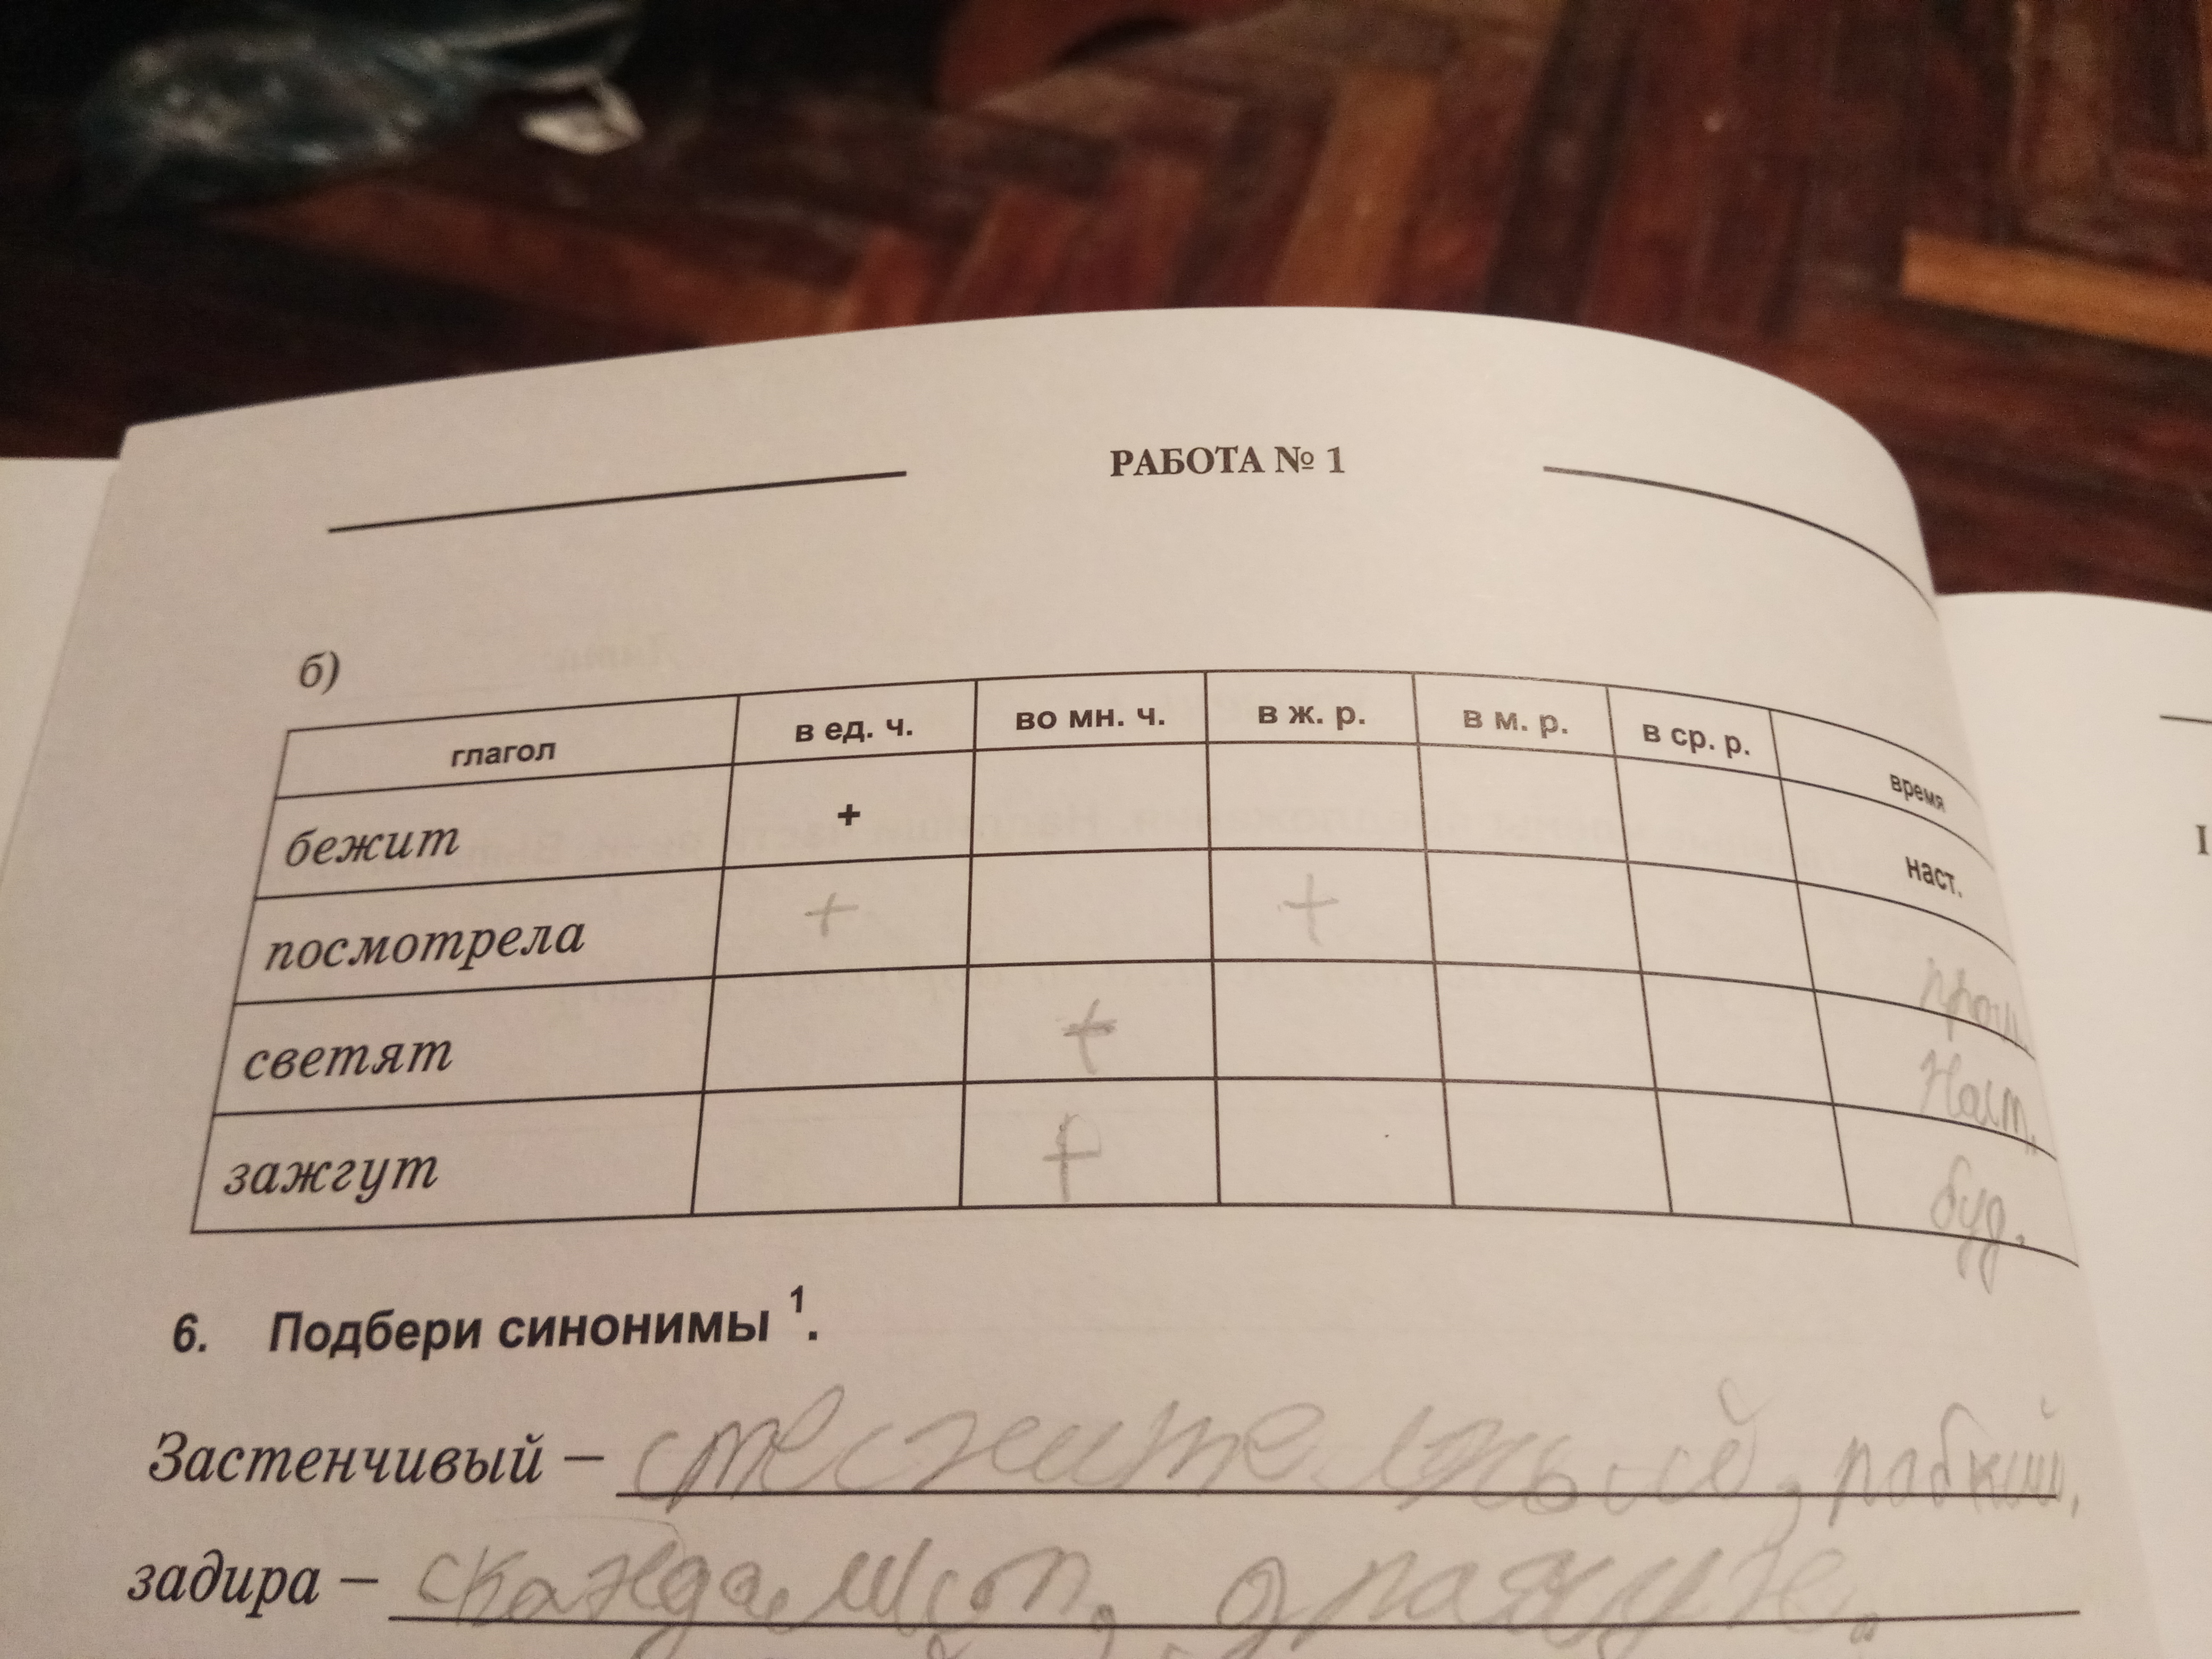 РАБОТА № 1
б)
глагол в ед. ч. во мн. ч. в ж. р. в м. р. в ср. р. время
бежит + наст.
посмотрела + + прош.
светят + Наст.
зажгут + буд.
6. Подбери синонимы 1.
Застенчивый – стеснительный, робкий.
задира –